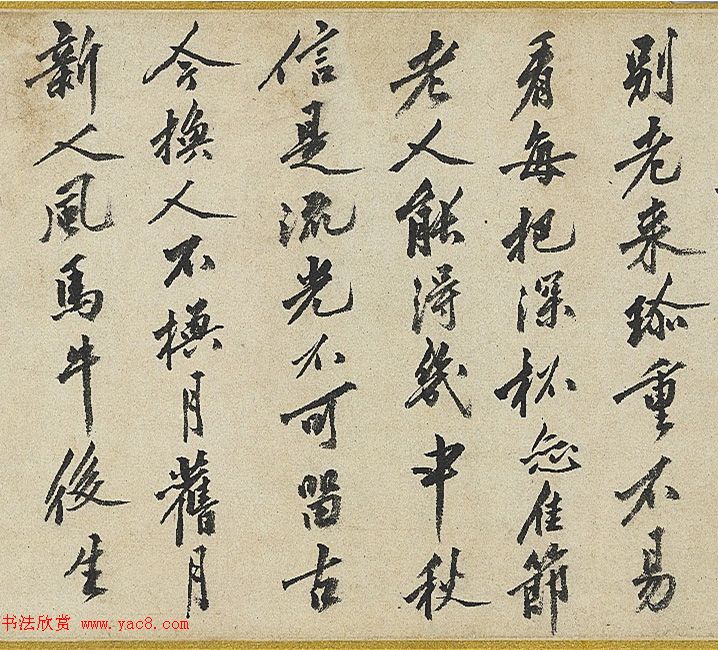 別老来珎重不易
看每把深杯佳節
老人能得幾中秋
信是流光不可留古
今換人不換月舊月
新人風馬牛後生
书法欣赏 www.yac8.com